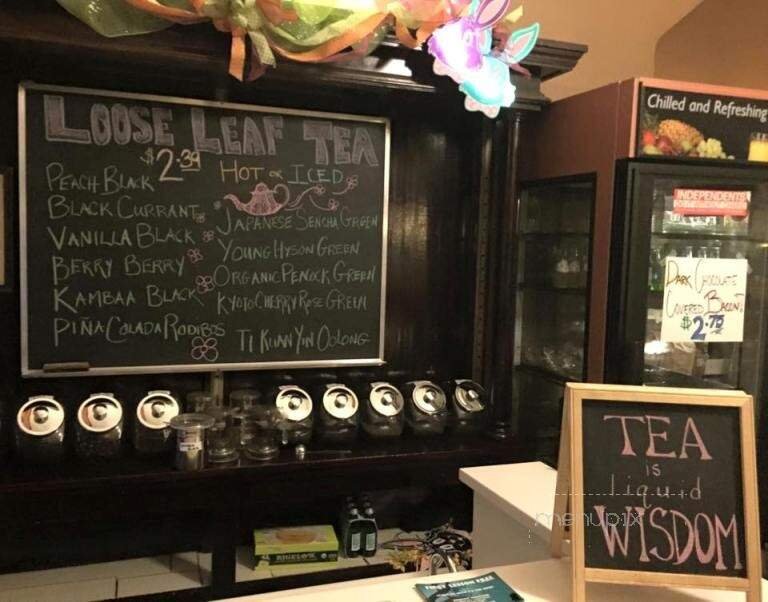 LOOSE LEAF TEA
$2.39 HOT or ICED
PEACH BLACK
BLACK CURRANT
VANILLA BLACK
BERRY BERRY
KAMBAA BLACK
PIÑA COLADA ROOIBOS
JAPANESE SENCHA GREEN
YOUNG HYSON GREEN
ORGANIC PEACOCK GREEN
KYOTO CHERRY ROSE GREEN
TI KUAN YIN OOLONG
Chilled and Refreshing
INDEPENDENTS
DARK CHOCOLATE
COVERED BACON!
$2.75
TEA
is
liquid
WISDOM
menupix
BIGELOW
FIRST LESSON FREE